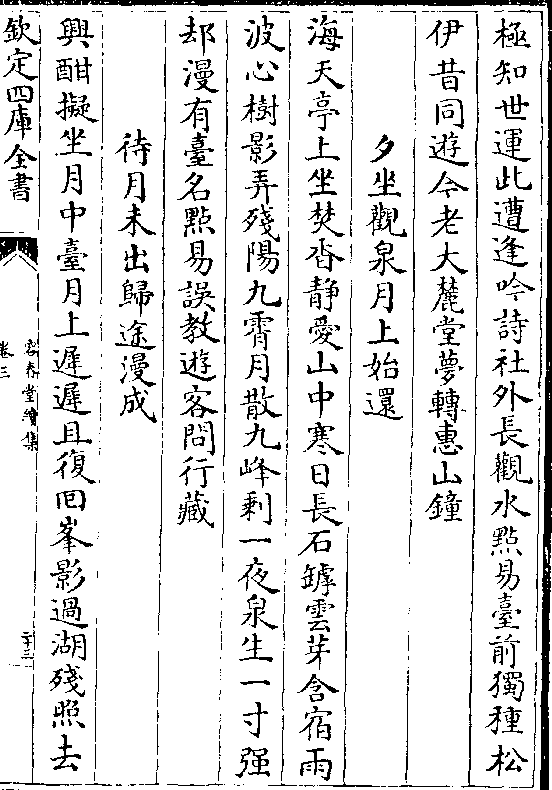 極知世運此遭逢吟詩社外長觀水點易臺前獨種松
伊昔同遊今老大麓堂夢轉惠山鐘
夕坐觀泉月上始還
海天亭上坐焚香静愛山中寒日長石罅雲芽含宿雨
波心樹影弄殘陽九霄月散九峰剩一夜泉生一寸强
却漫有臺名點易誤教遊客問行藏
待月未出歸途漫成
興酣擬坐月中臺月上遲遲且復回峯影過湖殘照去
欽定四庫全書
容春堂續集
卷三
二十三